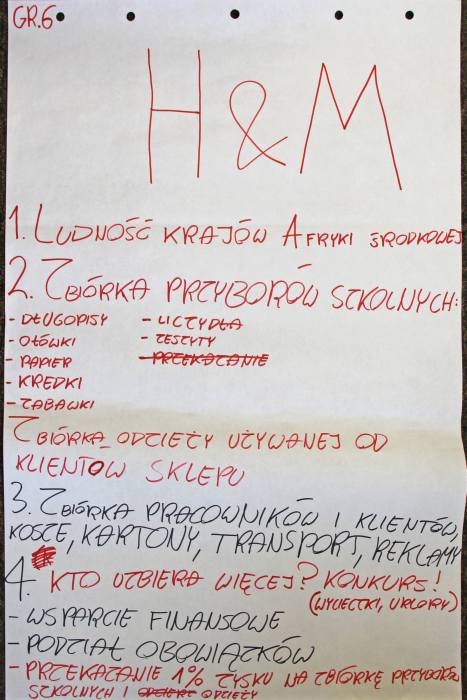 GR.6
H&M
1. LUDNOŚĆ KRAJÓW AFRYKI ŚRODKOWEJ
2. ZBIÓRKA PRZYBORÓW SZKOLNYCH:
- DŁUGOPISY - LICZYDŁA
- OŁÓWKI - ZESZYTY
- PAPIER - PRZEKAZANIE
- KREDKI
- ZABAWKI
ZBIÓRKA ODZIEŻY UŻYWANEJ OD
KLIENTOW SKLEPU
3. ZBIÓRKA PRACOWNIKÓW I KLIENTÓW,
KOSZE, KARTONY, TRANSPORT, REKLAMY
4. KTO UZBIERA WIĘCEJ? KONKURS!
(WYCIECZKI, URLOPY)
- WSPARCIE FINANSOWE
- PODZIAŁ OBOWIĄZKÓW
- PRZEKAZANIE 1% ZYSKU NA ZBIÓRKĘ PRZYBORÓW
SZKOLNYCH I ODZIEŻY